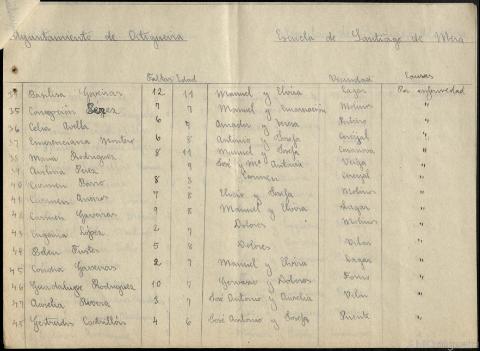 Ayuntamiento de Ortigueira Escuela de Santiago de Mera
Faltas Edad Vecindad Causas
Baptisa Gaveiras 12 11 Manuel y Elvira Lagar Por enfermedad
35 Concepción Perez 7 7 Manuel y Encarnación Molinos "
36 Celia Avella 6 Amador y "
37 Emerenciana Montero 6 8 Antonio y Josefa "
38 Maria Rodriguez 8 11 Manuel y Josefa Casanova "
39 Perez 9 José y Mª Antonia Veiga "
40 Carmen 8 8 Carmen "
41 Carmen 7 8 Elvira y Josefa Molinos "
42 Carmen Gaveiras 9 8 Manuel y Elvira Lagar "
43 Eugenia López 2 7 Dolores Molinos "
44 Belen Fustes 5 8 Dolores Vilar "
45 Concha Gaveiras 2 7 Manuel y Elvira Lagar "
46 Guadalupe Rodriguez 10 7 y Dolores "
47 Aurelia Rivera 3 7 José Antonio y Aurelia Vilar "
48 Gertrudis Castrillón 4 6 José Antonio y Josefa Puente "